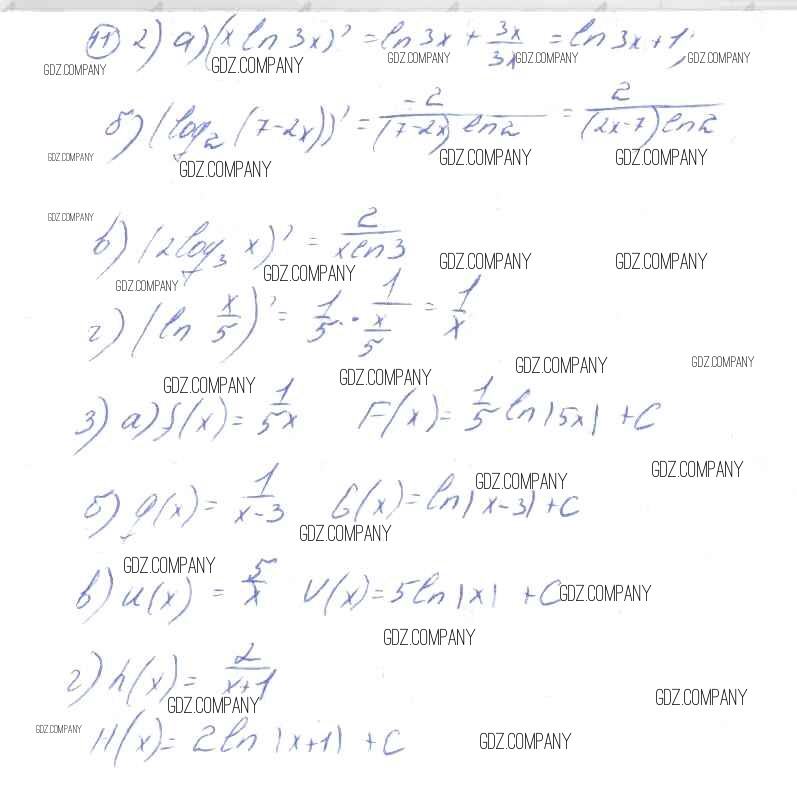 11 2) а) (x ln 3x)' = ln 3x + 3x/3x = ln 3x + 1;
GDZ.COMPANY GDZ.COMPANY GDZ.COMPANY GDZ.COMPANY GDZ.COMPANY
б) (log₂ (7-2x))' = -2/((7-2x) ln 2) = 2/((2x-7) ln 2)
GDZ.COMPANY GDZ.COMPANY GDZ.COMPANY GDZ.COMPANY
GDZ.COMPANY
в) (2 log₃ x)' = 2/(x ln 3)
GDZ.COMPANY GDZ.COMPANY GDZ.COMPANY GDZ.COMPANY
г) (ln x/5)' = 1/5 · 1/(x/5) = 1/x
GDZ.COMPANY GDZ.COMPANY GDZ.COMPANY GDZ.COMPANY
3) а) f(x) = 1/5x F(x) = 1/5 ln |5x| + C
GDZ.COMPANY GDZ.COMPANY
б) g(x) = 1/(x-3) G(x) = ln |x-3| + C
GDZ.COMPANY
GDZ.COMPANY
в) u(x) = 5/x V(x) = 5 ln |x| + C
GDZ.COMPANY
GDZ.COMPANY
г) h(x) = 2/(x+1)
GDZ.COMPANY GDZ.COMPANY
H(x) = 2 ln |x+1| + C
GDZ.COMPANY GDZ.COMPANY